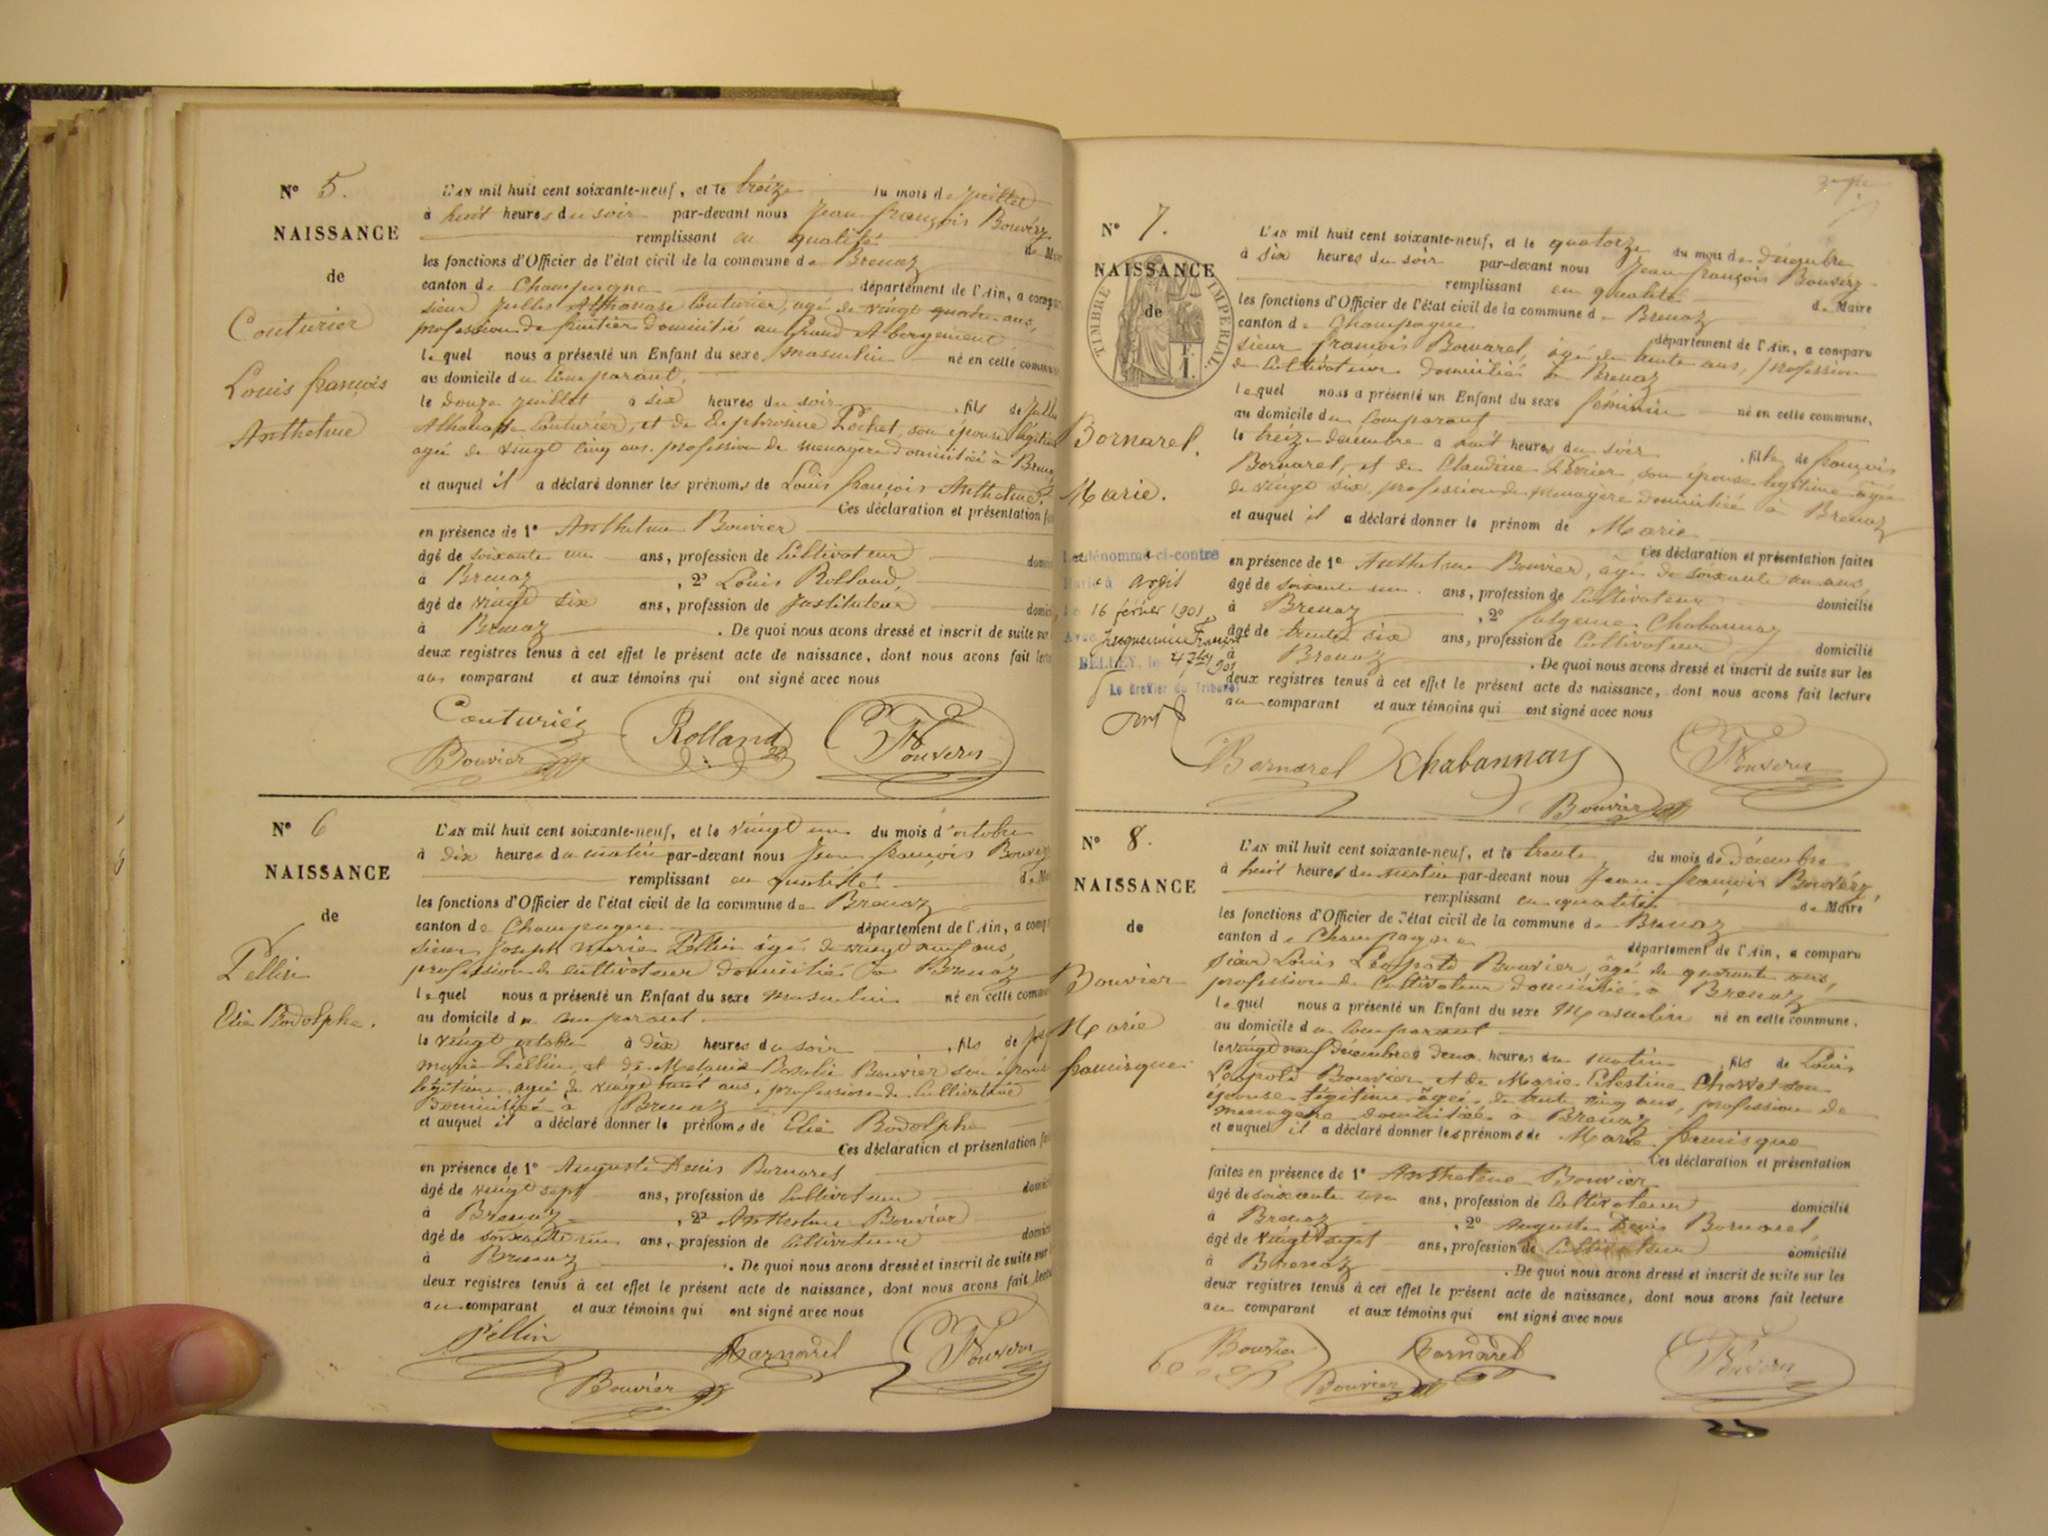 N° 5.
NAISSANCE
de
Couturier
Louis françois
Anthelme
L'AN mil huit cent soixante-neuf, et le treize du mois de Juillet
à huit heures du soir par-devant nous Jean françois Bouvéry
remplissant en qualité de Maire
les fonctions d'Officier de l'état civil de la commune de Brenaz
canton de Champagne département de l'Ain, a comparu
sieur Jules Athanase Couturier, agé de vingt quatre ans,
profession de fruitier domicilié au Grand Abergement
lequel nous a présenté un Enfant du sexe masculin né en cette commune
au domicile du Comparant,
le douze juillet à six heures du soir, fils de Jules
Athanase Couturier, et de Euphrosine Pochet, son épouse légitime
agée de vingt cinq ans. profession de menagère domiciliée à Brenaz
et auquel il a déclaré donner les prénoms de Louis françois Anthelme.
Ces déclaration et présentation
en présence de 1° Anthelme Bouvier
âgé de soixante un ans, profession de Cultivateur
à Brenaz, 2° Louis Rolland,
âgé de vingt six ans, profession de Instituteur
à Brenaz. De quoi nous avons dressé et inscrit de suite sur
deux registres tenus à cet effet le présent acte de naissance, dont nous avons fait lecture
au comparant et aux témoins qui ont signé avec nous
Couturier Rolland
Bouvier
N° 6
NAISSANCE
de
Pellin
Elie Rodolphe.
L'AN mil huit cent soixante-neuf, et le vingt un du mois d'octobre
à dix heures du matin par-devant nous Jean françois Bouvéry
remplissant en qualité de
les fonctions d'Officier de l'état civil de la commune de Brenaz
canton de Champagne département de l'Ain, a comp
sieur Joseph Marie Pellin âgé de vingt neuf ans,
profession de cultivateur domicilié à Brenaz
lequel nous a présenté un Enfant du sexe masculin né en cette commune
au domicile du comparant.
le vingt octobre à dix heures du soir, fils de
Marie Pellin, et de Melanie Rosalie Bouvier son épouse
légitime agée de vingt huit ans, profession de Cultivatrice
Domiciliée à Brenaz
et auquel il a déclaré donner les prénoms de Elie Rodolphe
Ces déclaration et présentation
en présence de 1° Auguste Denis Bornarel
âgé de vingt sept ans, profession de Cultivateur
à Brenaz, 2° Anthelme Bouvier
âgé de soixante un ans, profession de Cultivateur
à Brenaz. De quoi nous avons dressé et inscrit de suite sur
deux registres tenus à cet effet le présent acte de naissance, dont nous avons fait lecture
au comparant et aux témoins qui ont signé avec nous
Pellin Bornarel
Bouvier
N° 7.
NAISSANCE
de
TIMBRE IMPÉRIAL
Bornarel.
Marie.
dénommé ci-contre
16 février 1901
BELLEY, le
Le Greffier du Tribunal
L'AN mil huit cent soixante-neuf, et le quatorze du mois de décembre
à six heures du soir par-devant nous Jean françois Bouvéry
remplissant en qualité de Maire
les fonctions d'Officier de l'état civil de la commune de Brenaz
canton de Champagne département de l'Ain, a comparu
sieur françois Bornarel, âgé de trente ans, profession
de Cultivateur domicilié à Brenaz
lequel nous a présenté un Enfant du sexe féminin né en cette commune,
au domicile du Comparant
le treize décembre à huit heures du soir, fille de françois
Bornarel, et de Claudine Perrier, son épouse légitime âgée
de vingt six, profession de menagère domiciliée à Brenaz
et auquel il a déclaré donner le prénom de Marie
Ces déclaration et présentation faites
en présence de 1° Anthelme Bouvier, âgé de soixante un ans,
âgé de soixante un ans, profession de Cultivateur domicilié
à Brenaz, 2° Chabannay
âgé de trente six ans, profession de Cultivateur domicilié
à Brenaz. De quoi nous avons dressé et inscrit de suite sur les
deux registres tenus à cet effet le présent acte de naissance, dont nous avons fait lecture
au comparant et aux témoins qui ont signé avec nous
Bornarel Chabannay
Bouvier
N° 8.
NAISSANCE
de
Bouvier
Marie
francisque.
L'AN mil huit cent soixante-neuf, et le trente du mois de décembre
à huit heures du matin par-devant nous Jean françois Bouvéry,
remplissant en qualité de Maire
les fonctions d'Officier de l'état civil de la commune de Brenaz
canton de Champagne département de l'Ain, a comparu
sieur Louis Léopold Bouvier, âgé de quarante ans,
profession de Cultivateur domicilié à Brenaz
lequel nous a présenté un Enfant du sexe Masculin né en cette commune.
au domicile du Comparant
le vingt neuf décembre à deux heures du matin, fils de Louis
Léopold Bouvier, et de Marie Célestine Charvet son
épouse légitime âgée de trente cinq ans, profession de
menagère domiciliée à Brenaz
et auquel il a déclaré donner les prénoms de Marie francisque
Ces déclaration et présentation
faites en présence de 1° Anthelme Bouvier
âgé de soixante un ans, profession de Cultivateur domicilié
à Brenaz, 2° Auguste Denis Bornarel,
âgé de vingt sept ans, profession de Cultivateur domicilié
à Brenaz. De quoi nous avons dressé et inscrit de suite sur les
deux registres tenus à cet effet le présent acte de naissance, dont nous avons fait lecture
au comparant et aux témoins qui ont signé avec nous
Bouvier Bornarel
Bouvier